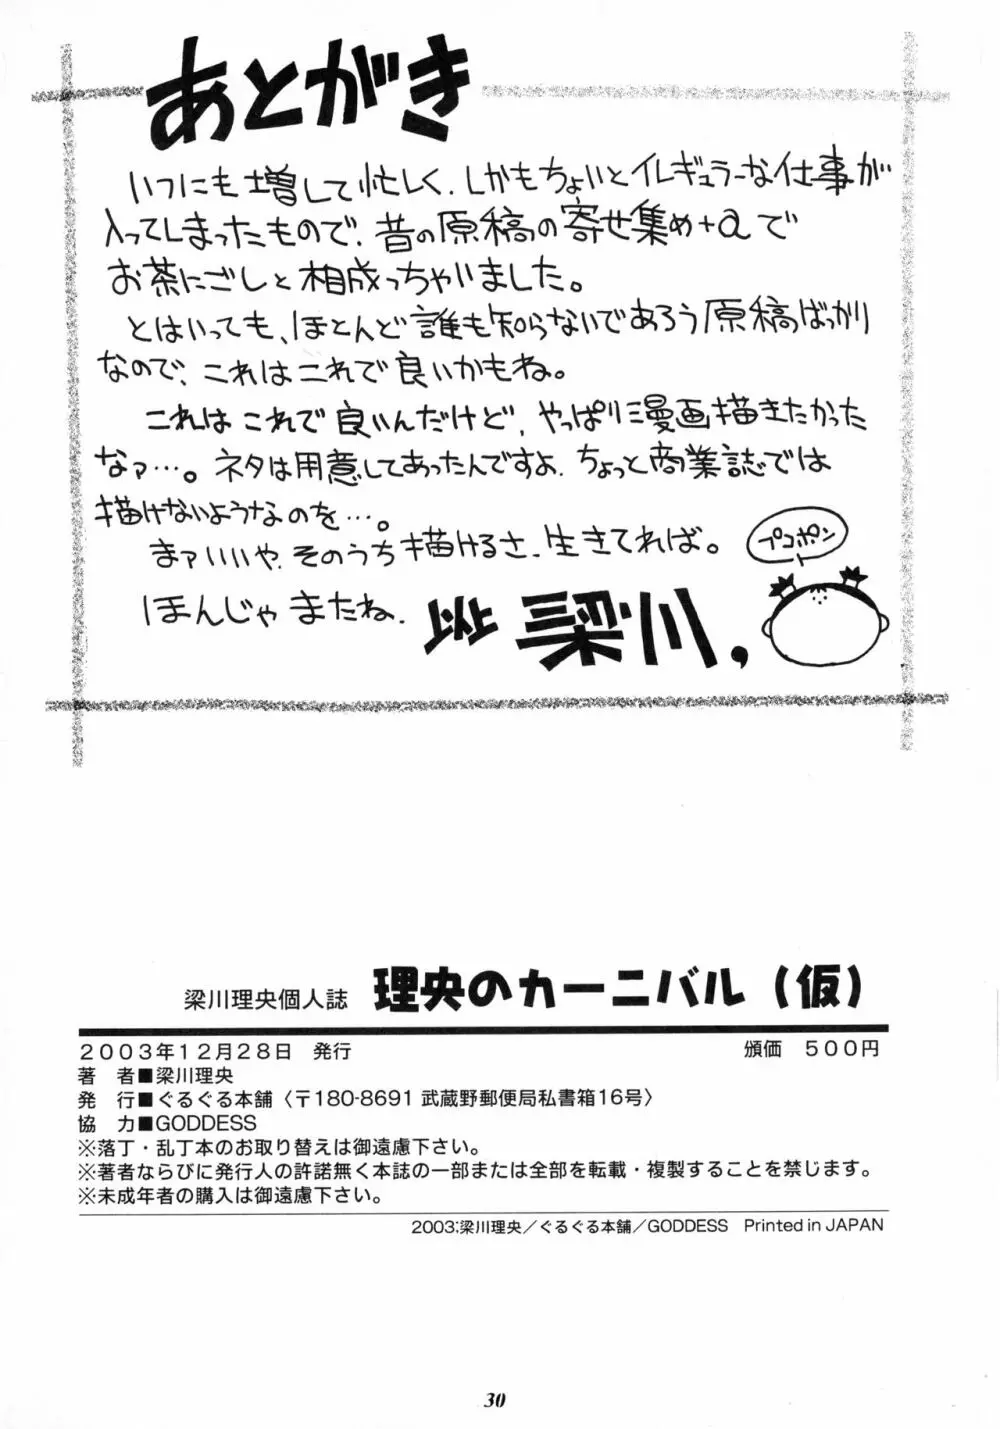 あとがき
いつにも増して忙しく、しかもちょいとイレギュラーな仕事が
入ってしまったもので、昔の原稿の寄せ集め+αで
お茶にごしと相成っちゃいました。
とはいっても、ほとんど誰も知らないであろう原稿ばっかり
なので、これはこれで良いかもね。
これはこれで良いんだけど、やっぱり漫画描きたかった
なァ…。ネタは用意してあったんですよ、ちょっと商業誌では
描けないようなのを…。
まァいいや、そのうち描けるさ、生きてれば。
プコポン
ほんじゃまたね、
梁川,
梁川理央個人誌 理央のカーニバル(仮)
2003年12月28日 発行 頒価 500円
著 者■梁川理央
発 行■ぐるぐる本舗〈〒180-8691 武蔵野郵便局私書箱16号〉
協 力■GODDESS
※落丁・乱丁本のお取り替えは御遠慮下さい。
※著者ならびに発行人の許諾無く本誌の一部または全部を転載・複製することを禁じます。
※未成年者の購入は御遠慮下さい。
2003;梁川理央／ぐるぐる本舗／GODDESS Printed in JAPAN
30